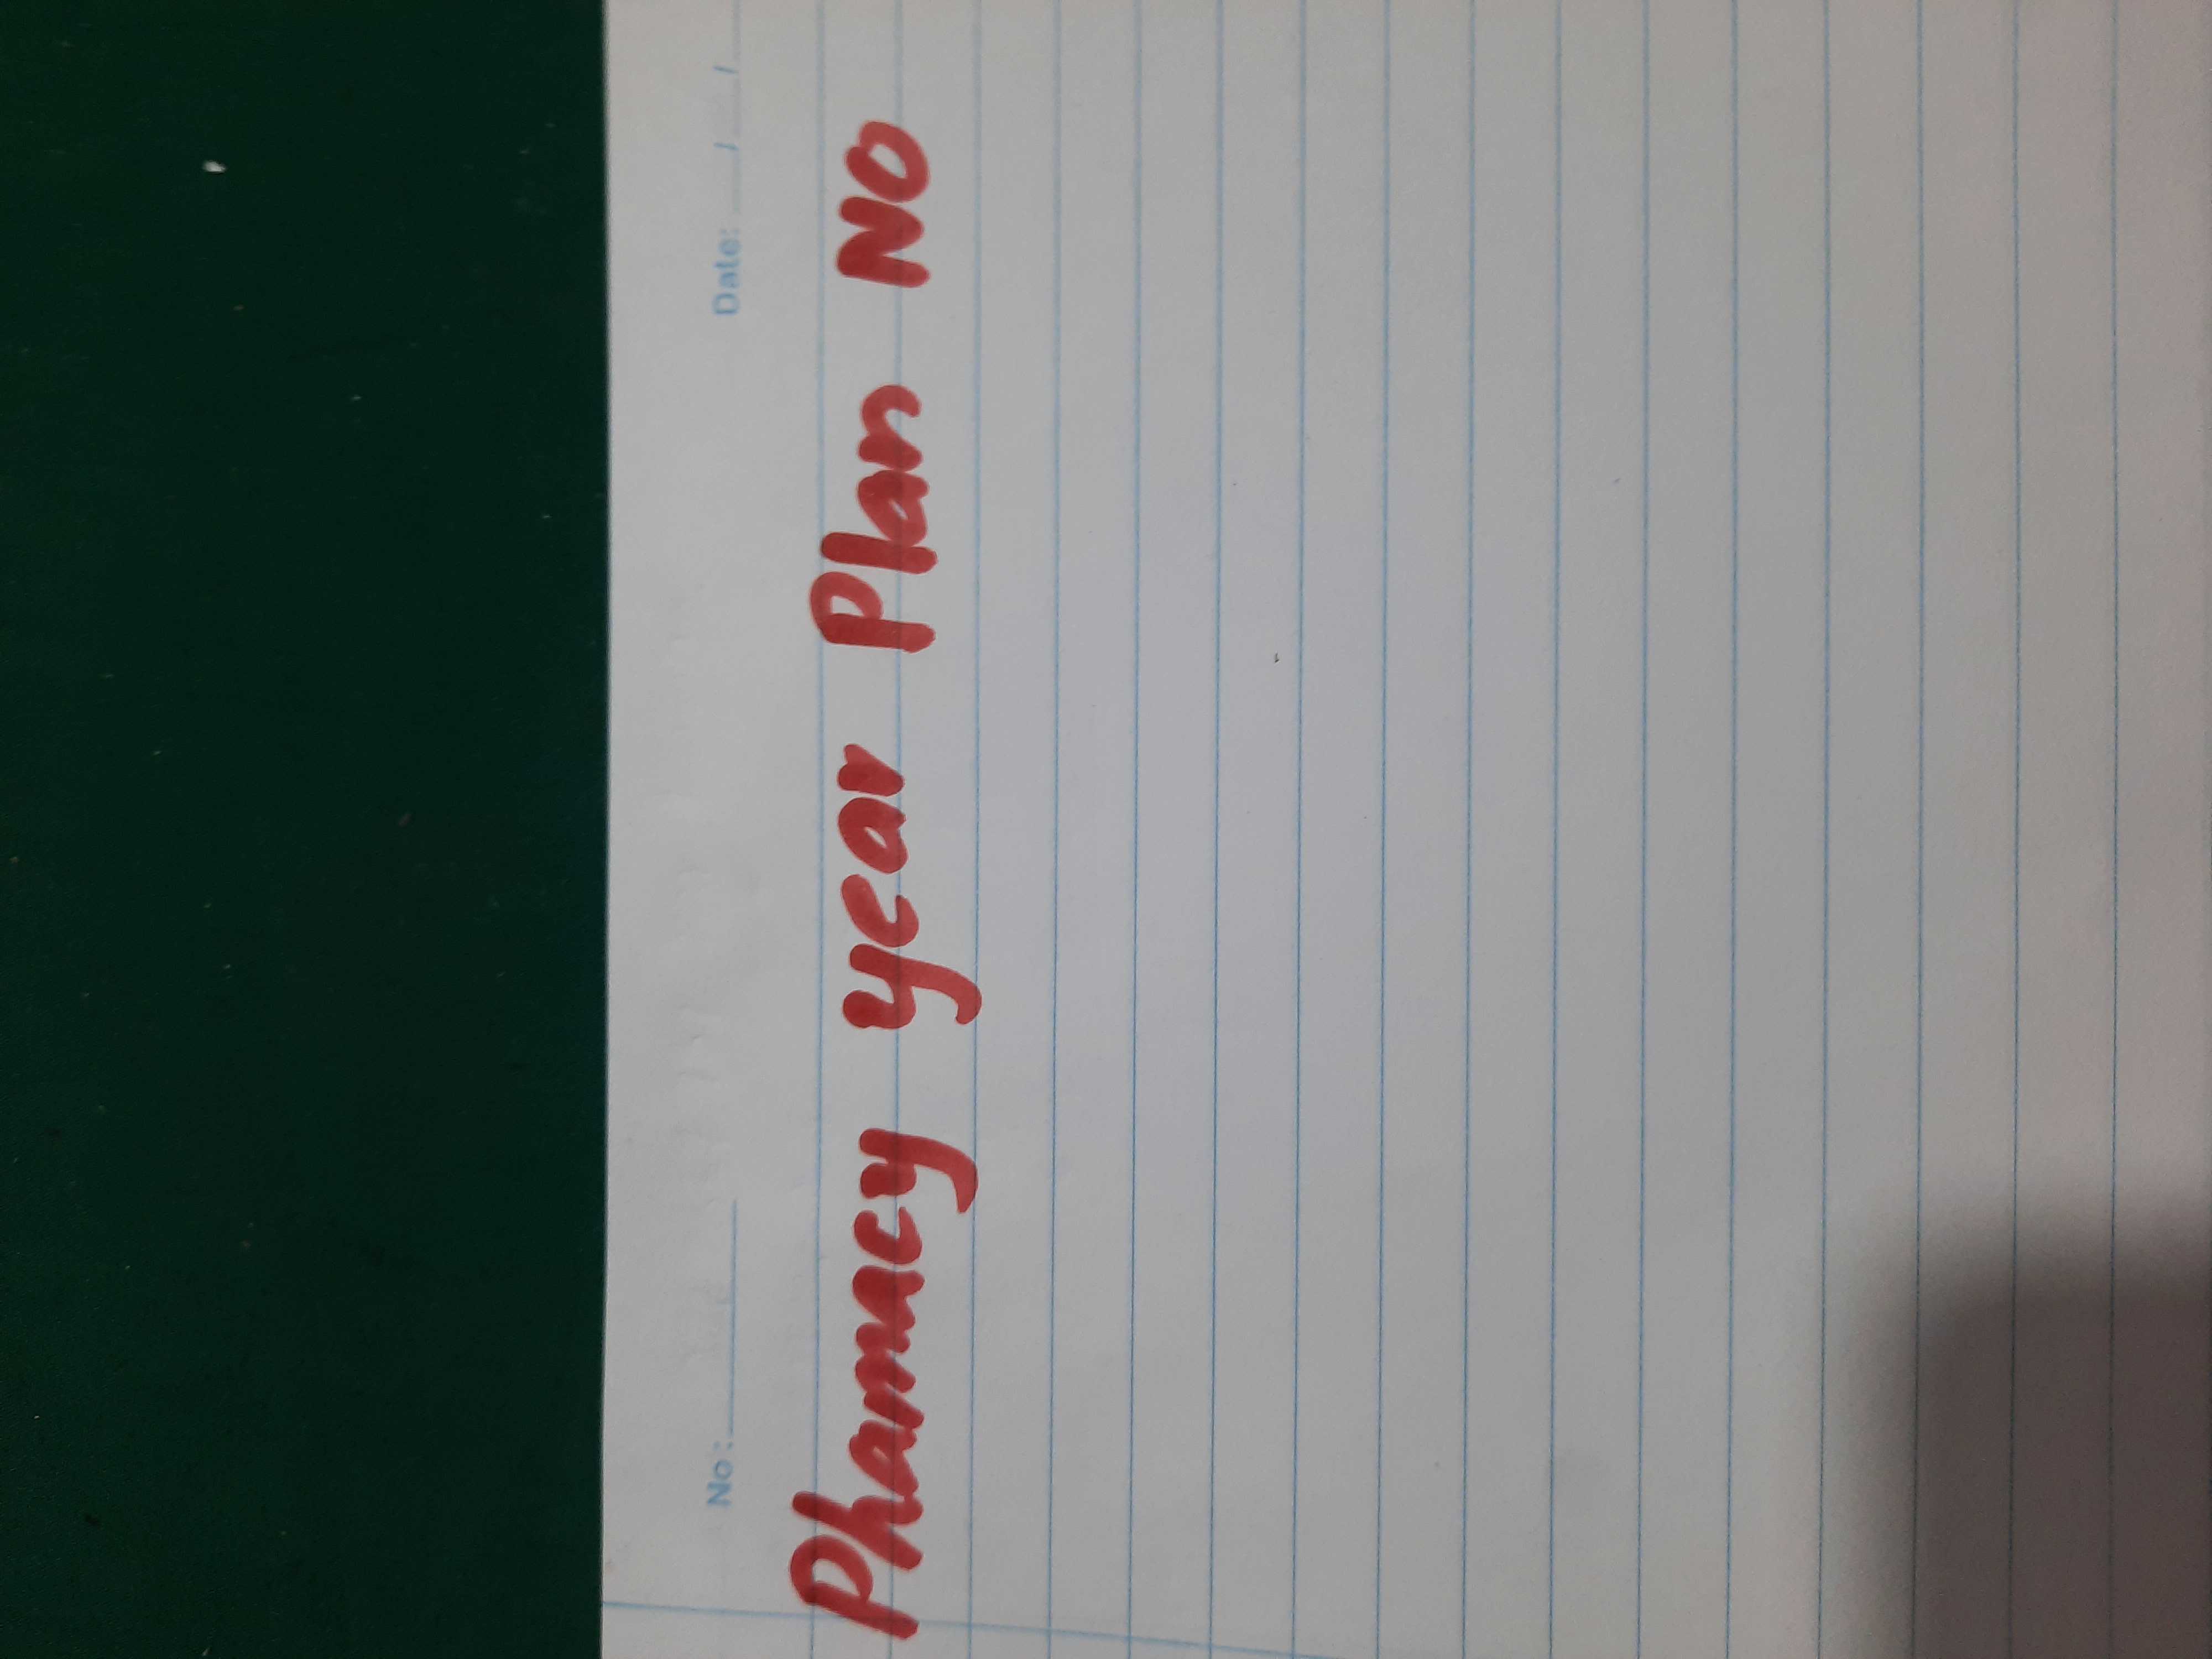 No: Date: / /
Phamacy year Plan NO